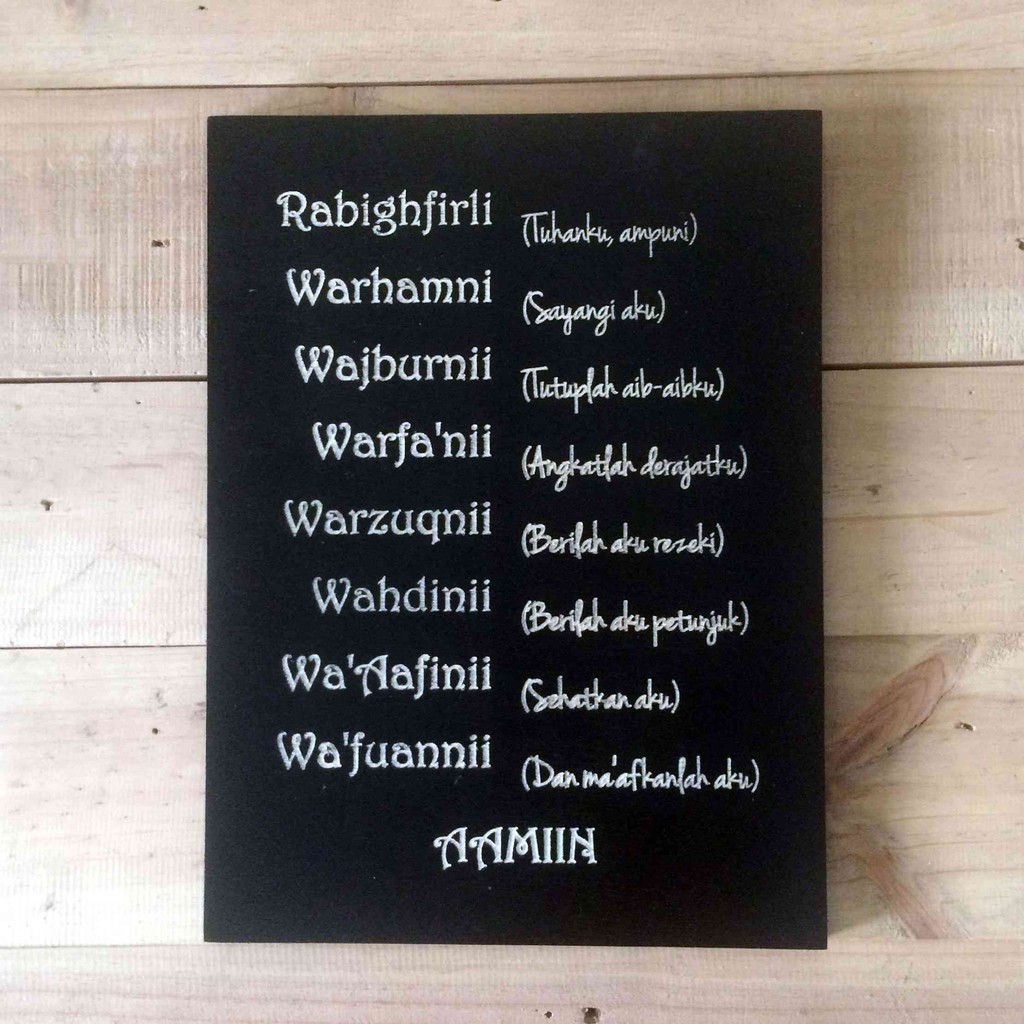 Rabighfirli (Tuhanku, ampuni)
Warhamni (Sayangi aku)
Wajburnii (Tutuplah aib-aibku)
Warfa'nii (Angkatlah derajatku)
Warzuqnii (Berilah aku rezeki)
Wahdinii (Berilah aku petunjuk)
Wa'Aafinii (Sehatkan aku)
Wa'fuannii (Dan ma'afkanlah aku)
AAMIIN